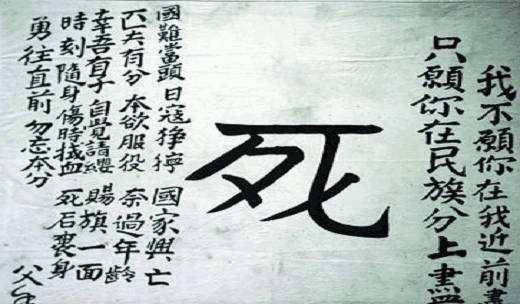 我不願你在我近前盡
只願你在民族分上盡
死
國難當頭 日寇猙獰 國家興亡
匹夫有分 本欲服役 奈過年齡
幸吾有子 自覺請纓 賜旗一面
時刻隨身 傷時拭血 死后裹身
勇往直前 勿忘本分 父